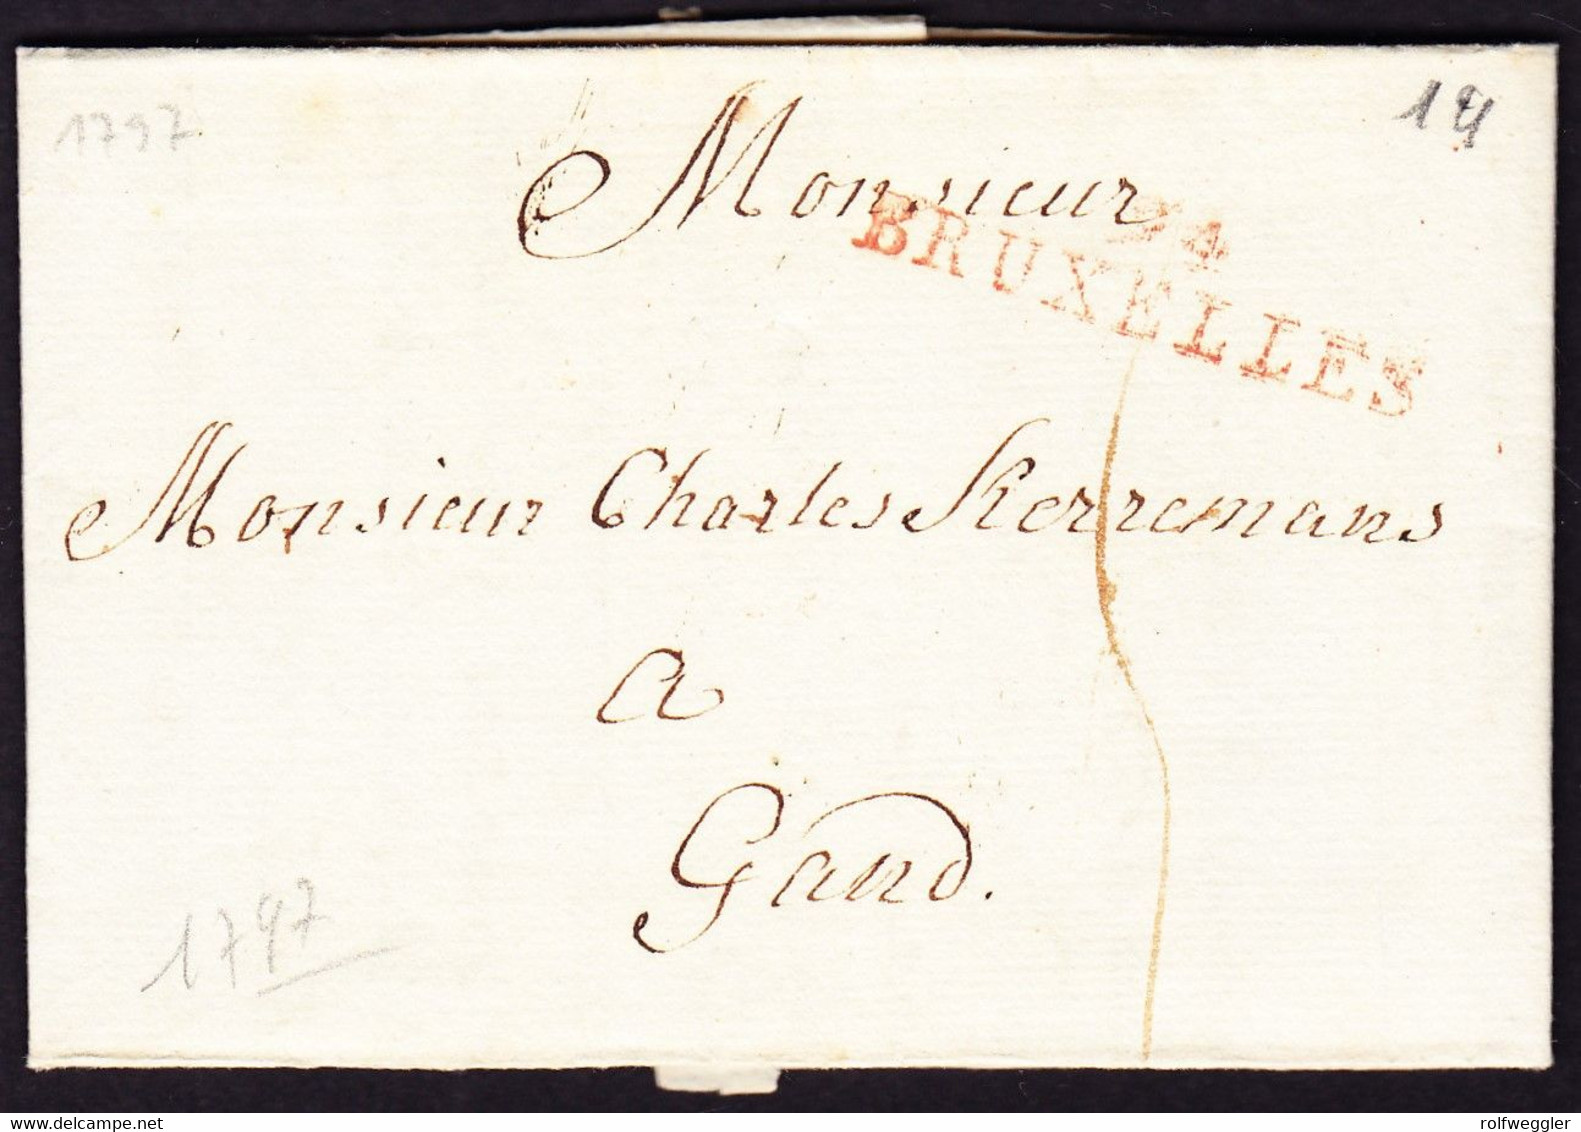 1797
14
Monsieur
94
BRUXELLES
Monsieur Charles Kerremans
a
Gand.
1797
delcampe.net
rolfweggler